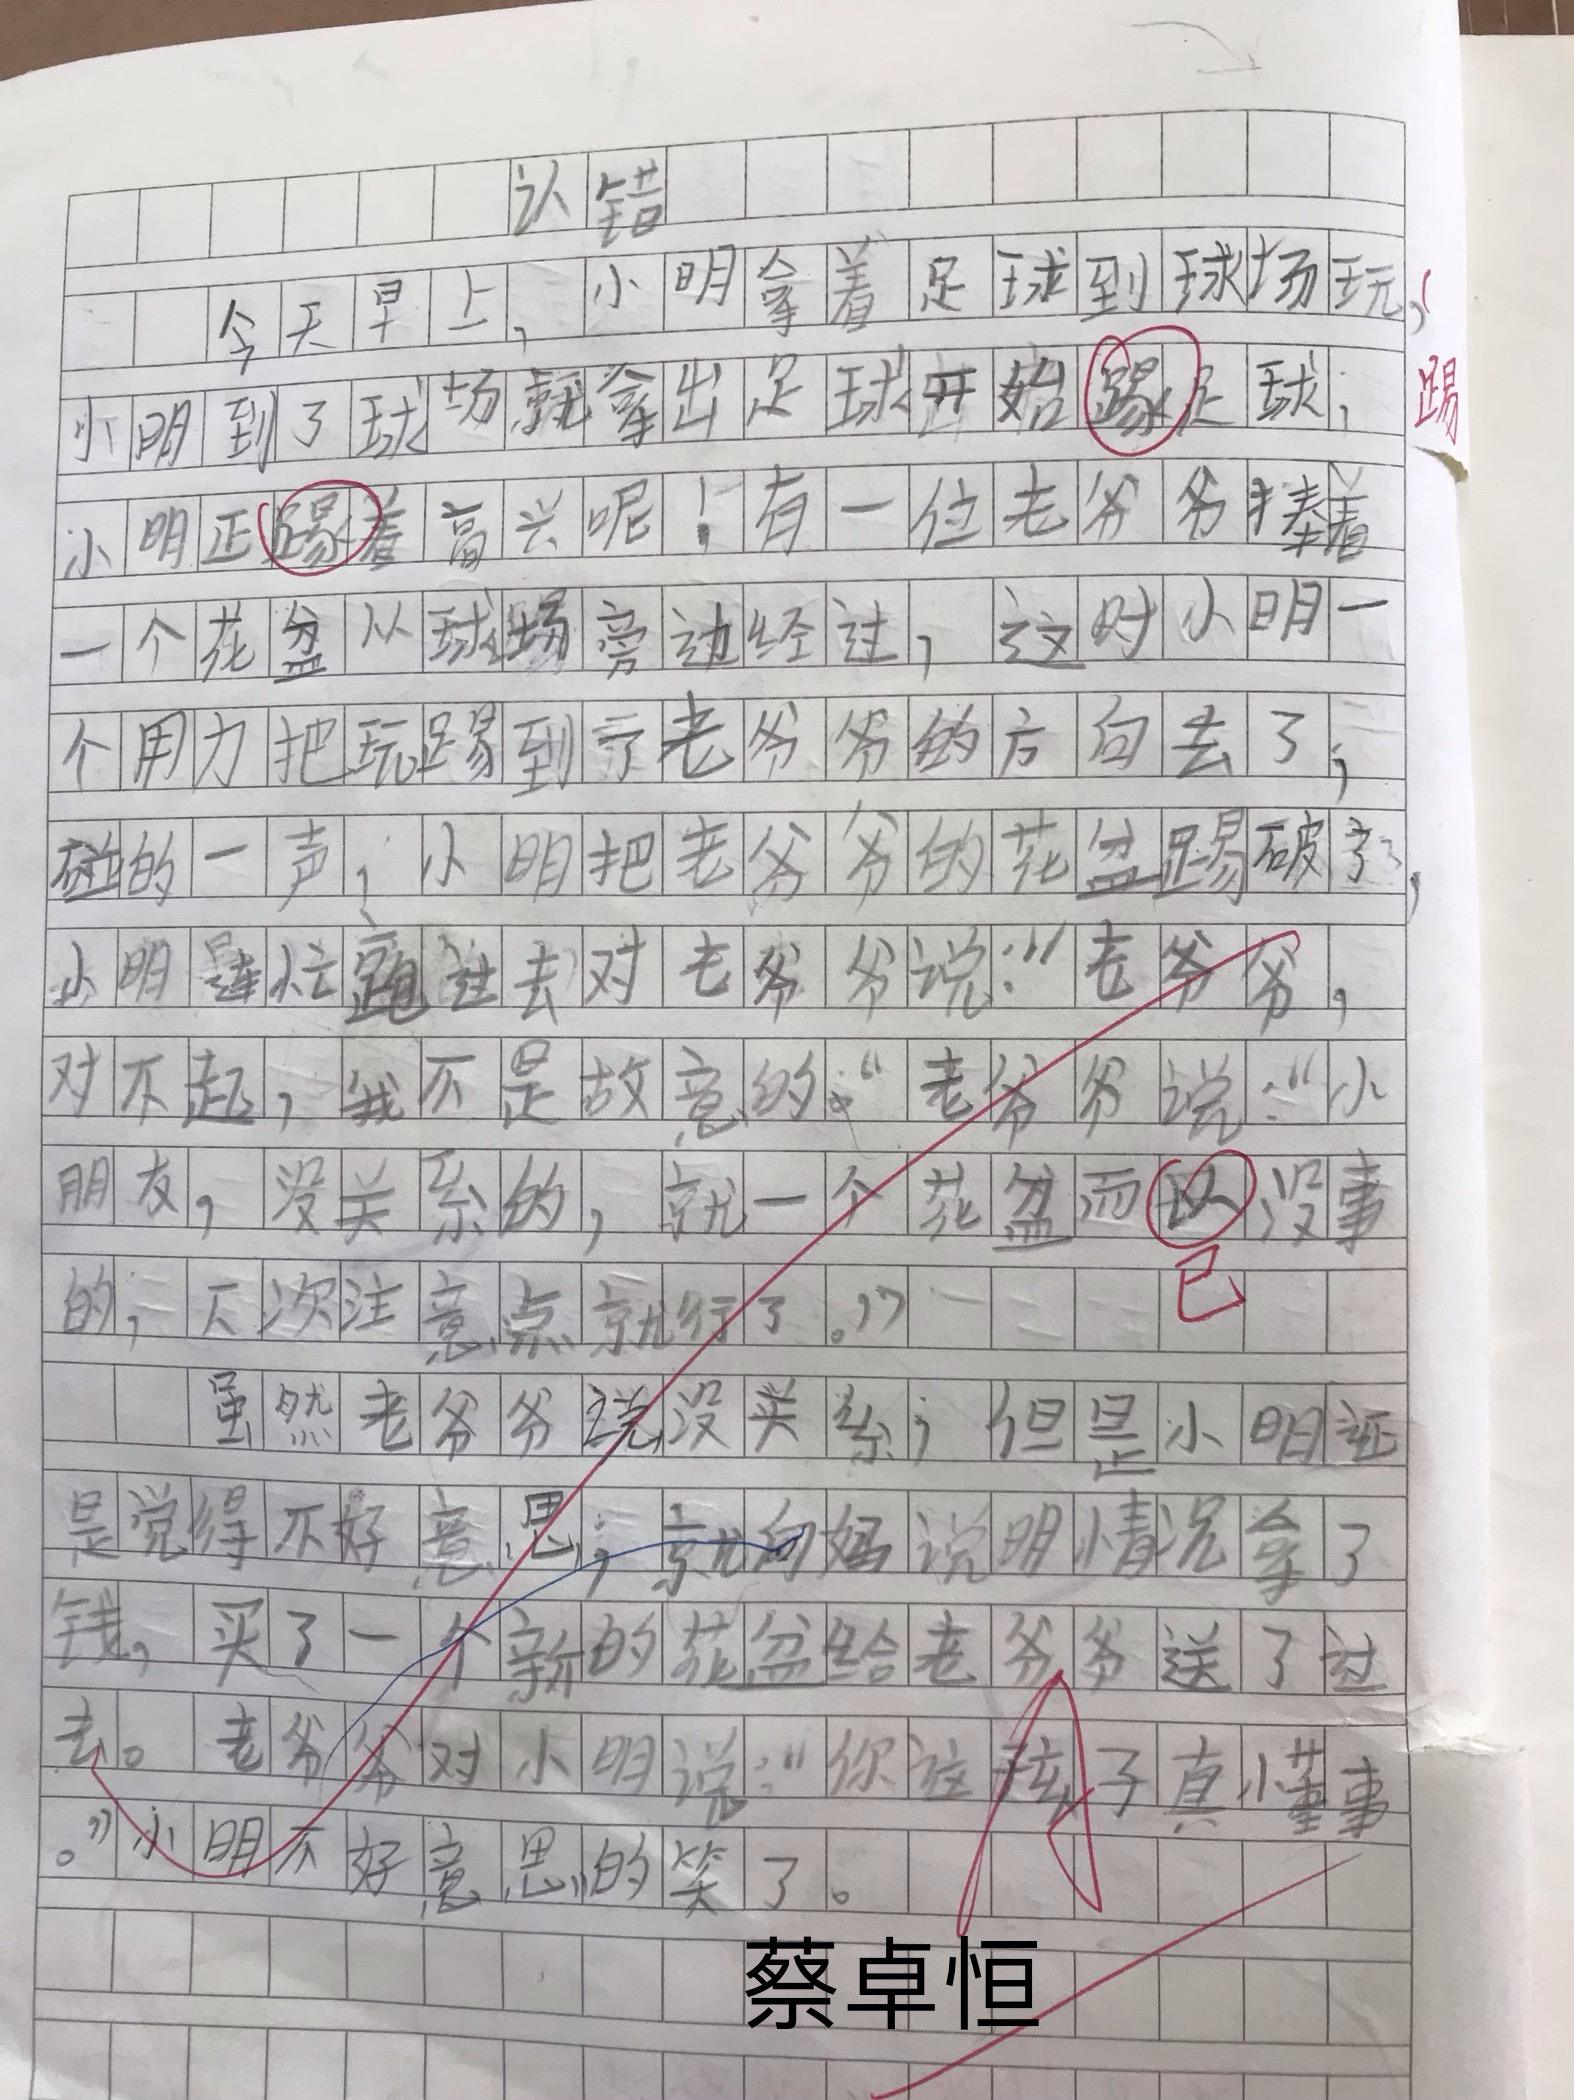 认错
今天早上,小明拿着足球到球场玩,
小明到了球场就拿出足球开始踢足球,
踢
小明正踢着高兴呢!有一位老爷爷捧着
一个花盆从球场旁边经过,这时小明一
个用力把玩踢到了老爷爷的方向去了,
碰的一声,小明把老爷爷的花盆踢破了,
小明连忙跑过去对老爷爷说:“老爷爷,
对不起,我不是故意的。“老爷爷说:“小
朋友,没关系的,就一个花盆而以没事
已
的,下次注意点就行了。”
虽然老爷爷说没关系,但是小明还
是觉得不好意思,就向妈说明情况拿了
钱,买了一个新的花盆给老爷爷送了过
去。老爷爷对小明说:“你这孩子真懂事
。”小明不好意思的笑了。
蔡卓恒